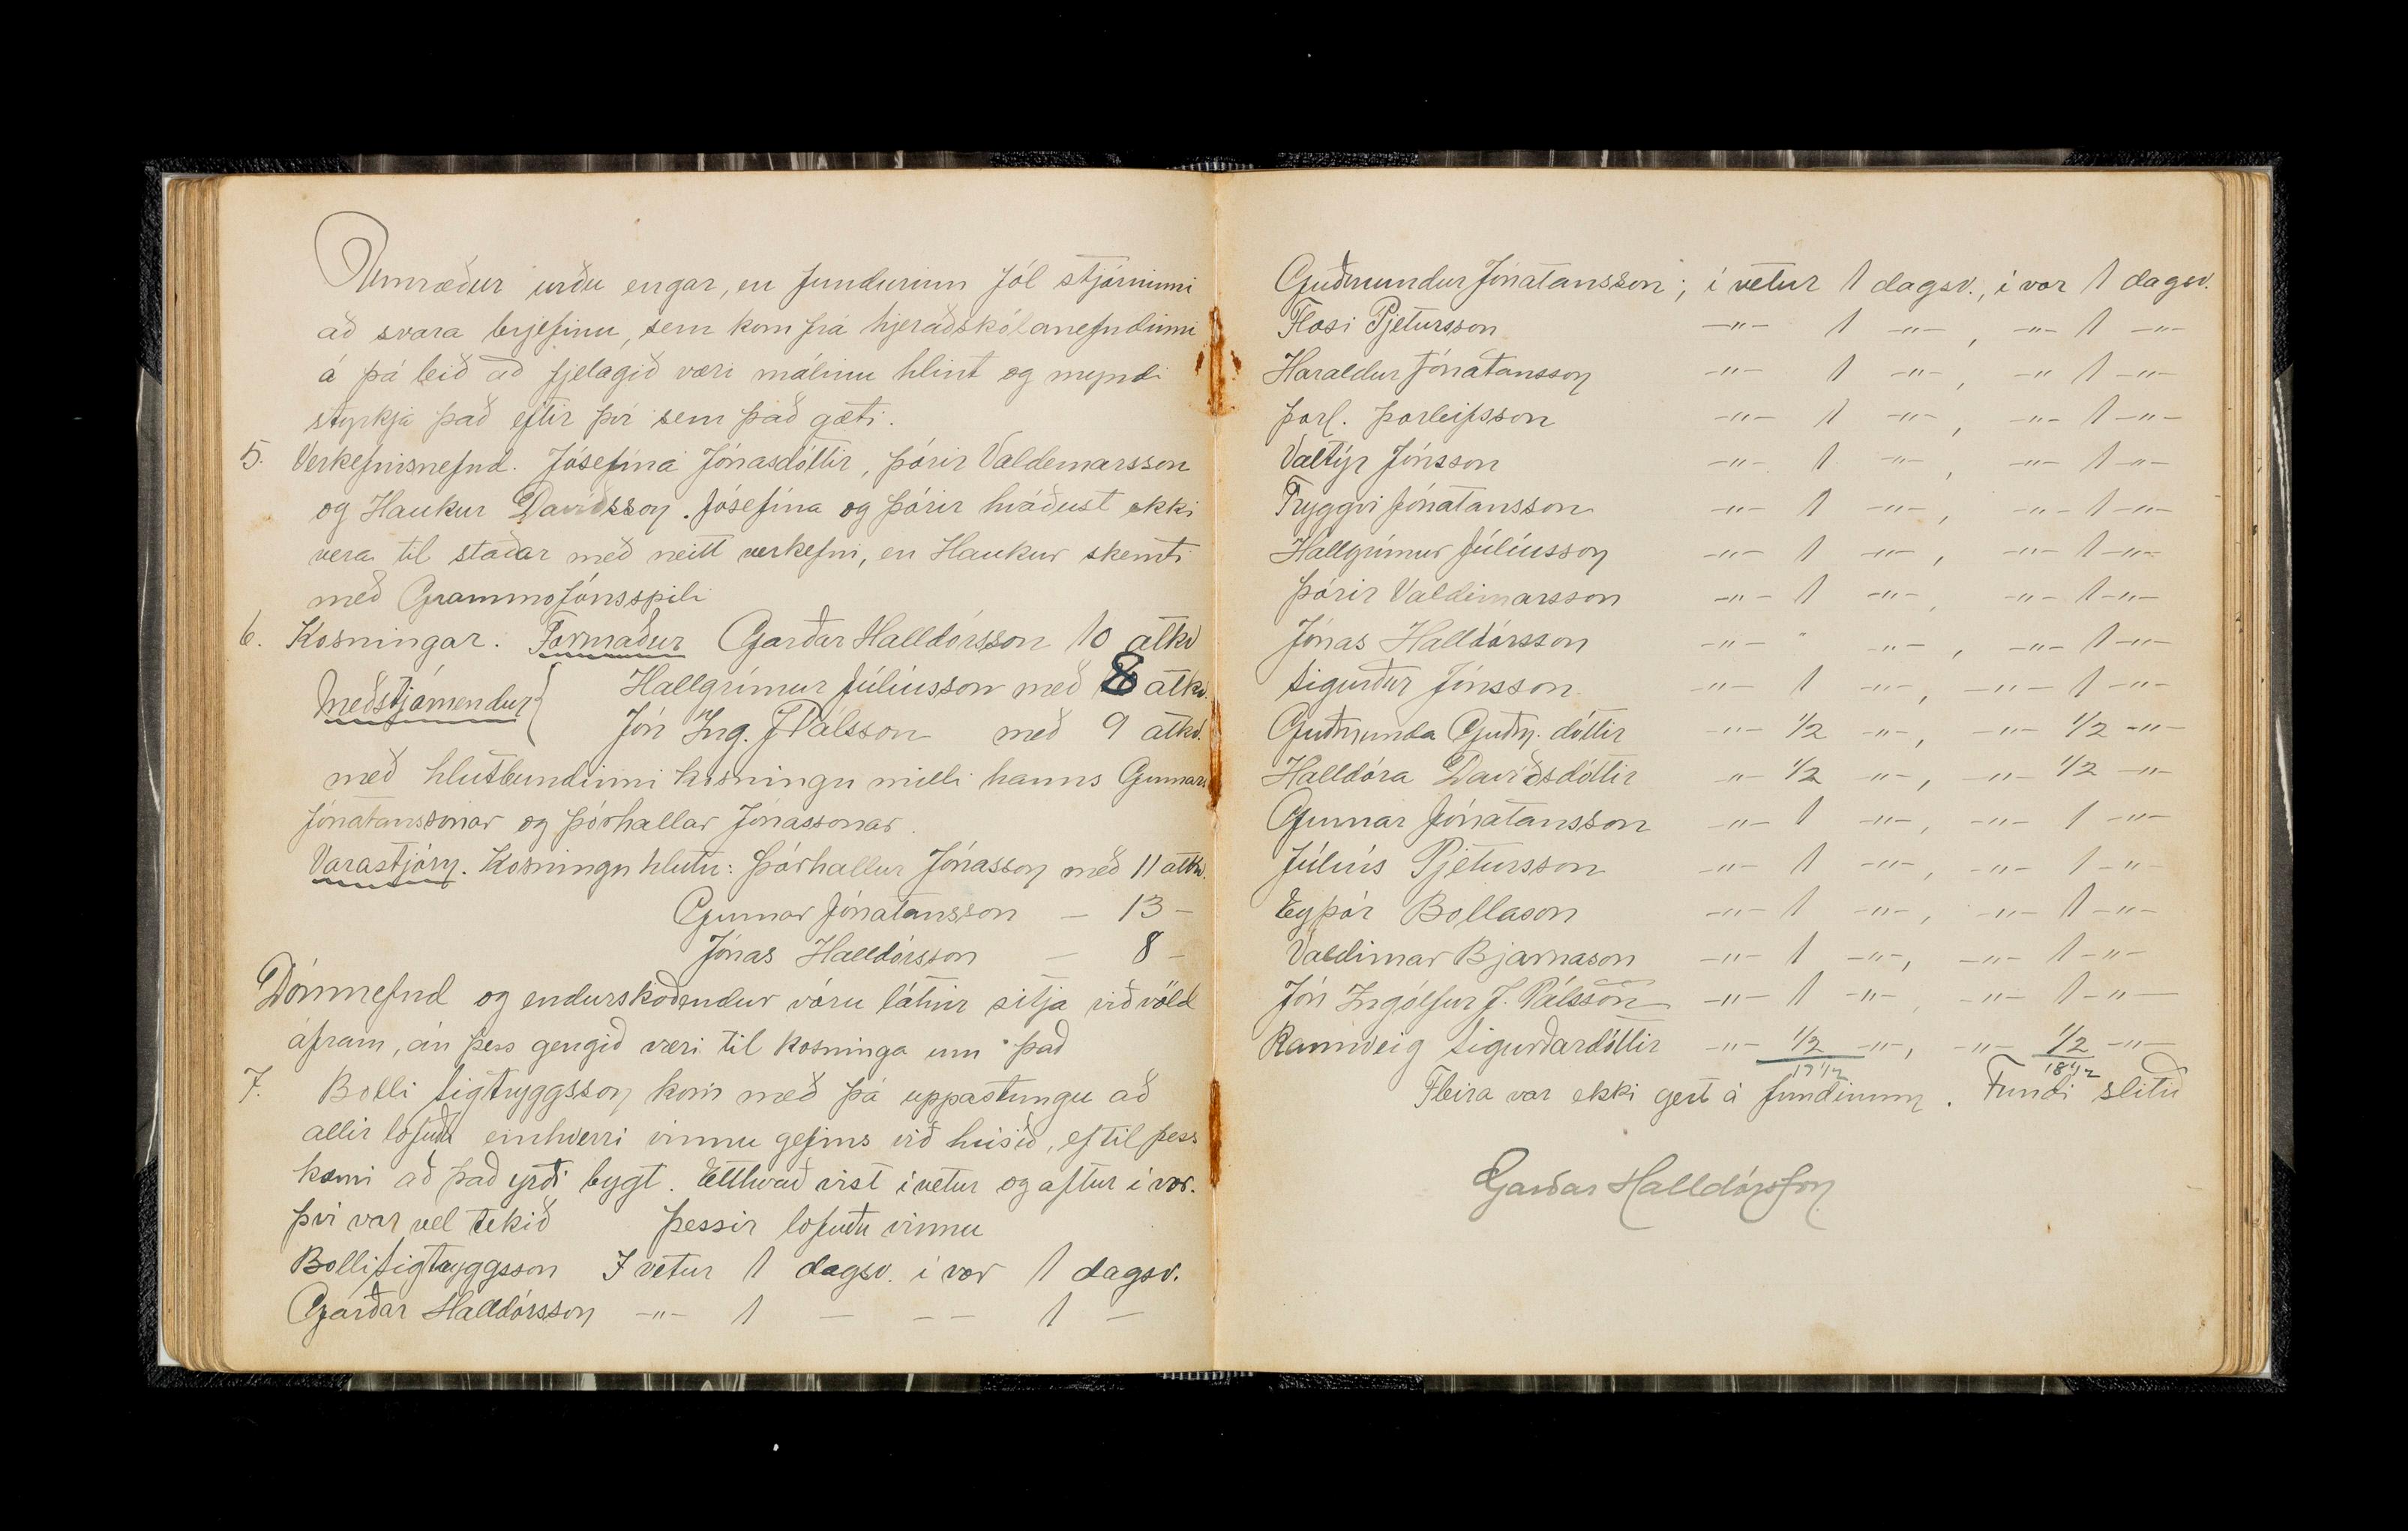 Umræður urðu engar, en fundurinn fól stjórninni
að svara brjefinu, sem kom frá hjeraðskólanefndinni
á þá leið að fjelagið væri málinu hlint og myndi
styrkja það eftir því sem það gæti.
5. Verkefnisnefnd. Jósefína Jónasdóttir, Þórir Valdemarsson
og Haukur Davíðsson. Jósefína og Þórir kváðust ekki
vera til staðar með neitt verkefni, en Haukur skemti
með Grammofónsspili
6. Kosningar. Formaður Garðar Halldórsson 10 atkv
Meðstjórnendur { Hallgrímur Júlíusson með 8 atkv.
Jón Ing. J Pálsson með 9 atkv.
með hlutbundinni kosningu milli hanns Gunnars
Jónatanssonar og Þórhallar Jónassonar.
Varastjórn. Kosningu hlutu: Þórhallur Jónasson með 11 atkv.
Gunnar Jónatansson — 13 —
Jónas Halldórsson — 8 —
Dómnefnd og endurskoðendur vóru látnir sitja við völd
áfram, án þess gengið væri til kosninga um það
7. Bolli Sigtryggsson kom með þá uppástungu að
allir lofuðu einhverri vinnu gefins við húsið, ef til þess
kæmi að það yrði bygt. Eitthvað vist í vetur og aftur í vor.
Því var vel tekið Þessir lofuðu vinnu
Bolli Sigtryggsson Í vetur 1 dagsv. í vor 1 dagsv.
Garðar Halldórsson —"— 1 — — — 1 —
Guðmundur Jónatansson; í vetur 1 dagsv., í vor 1 dagsv.
Flosi Pjetursson —"— 1 —"—, —"— 1 —"—
Haraldur Jónatansson —"— 1 —"—, —" 1 —"—
Þorl. Þorleifsson —"— 1 —"—, —"— 1 —"—
Valtýr Jónsson —"— 1 —"—, —"— 1 —"—
Tryggvi Jónatansson —"— 1 —"—, —"— 1 —"—
Hallgrímur Júlíusson —"— 1 —"—, —"— 1 —"—
Þórir Valdimarsson —"— 1 —"—, —"— 1 —"—
Jónas Halldórsson —"— " —"—, —"— 1 —"—
Sigurður Jónsson —"— 1 —"—, —"— 1 —"—
Guðmunda Guðm.dóttir —"— 1/2 —"—, —"— 1/2 —"—
Halldóra Davíðsdóttir —"— 1/2 —"—, —"— 1/2 —"—
Gunnar Jónatansson —"— 1 —"—, —"— 1 —"—
Júlíus Pjetursson —"— 1 —"—, —"— 1 —"—
Eyþór Bollason —"— 1 —"—, —"— 1 —"—
Valdimar Bjarnason —"— 1 —"—, —"— 1 —"—
Jón Ingólfur J. Pálsson —"— 1 —"— —"— 1 —"—
Rannveig Sigurðardóttir —"— 1/2 —"—, —"— 1/2 —"—
17 1/2 18 1/2
Fleira var ekki gert á fundinum. Fundi slitið
Garðar Halldórsson